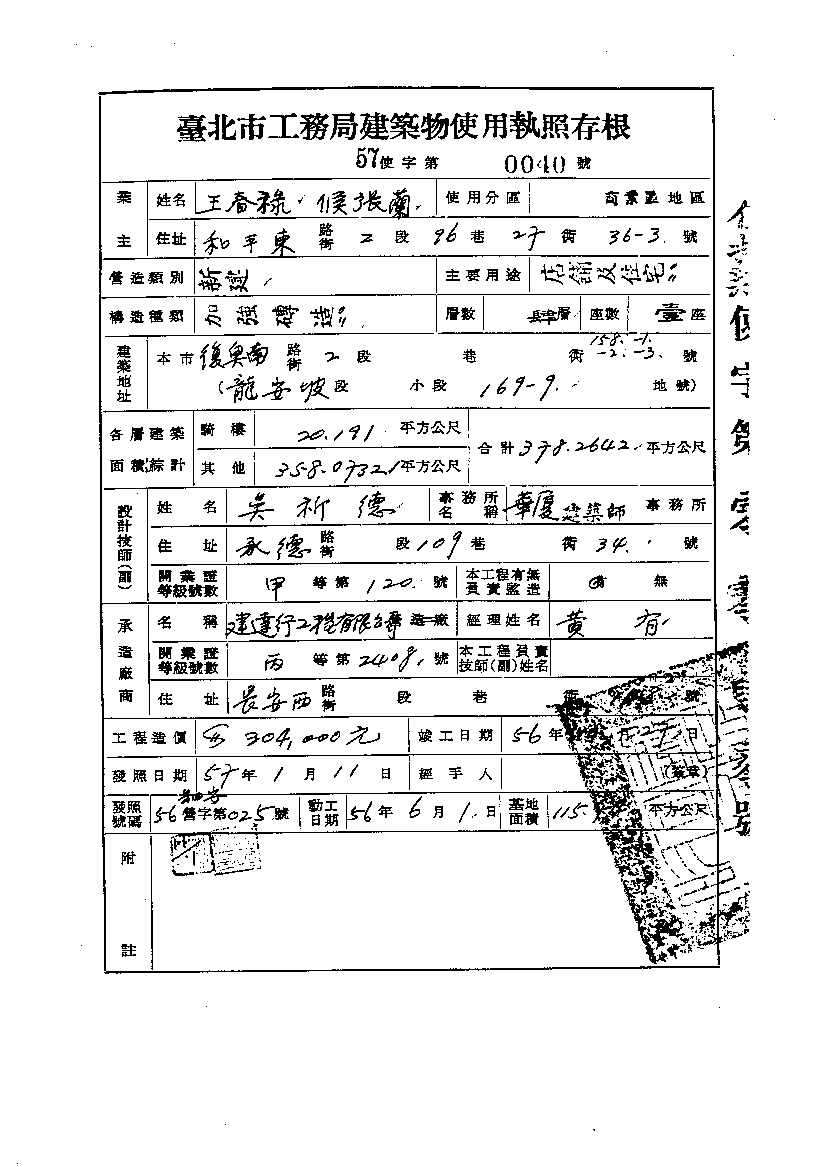 臺北市工務局建築物使用執照存根
57使字第 0040 號
業主 姓名 王春祿、候張蘭 使用分區 商業區地區
住址 和平東路街 2 段 96 巷 27 街 36-3 號
營造類別 新建 主要用途 店舖及住宅
構造種類 加強磚造 層數 肆層 座數 壹座
建築地址 本市復興南路街 2 段 巷 街 158.-1. -2.-3. 號
(龍安坡段 小段 169-9. 地號)
各層建築面積綜計 騎樓 20.191 平方公尺 合計 378.2642 平方公尺
其他 358.0732 平方公尺
設計技師(副) 姓名 吳祈德 事務所名稱 華廈建築師事務所
住址 承德路街 段 109 巷 街 34. 號
開業證等級號數 甲等第 120. 號 本工程有無負責監造 有 無
承造廠商 名稱 建達行工程有限公司營造廠 經理姓名 黃有
開業證等級號數 丙等第 2408. 號 本工程負責技師(副)姓名
住址 長安西路街 段 巷 街 號
工程造價 304,000元 竣工日期 56年 月 27 日
發照日期 57年 1 月 11 日 經手人 (簽章)
發照號碼 56 營字第 025 號 動工日期 56年 6 月 1. 日 基地面積 115. 平方公尺
附註
使字第零零